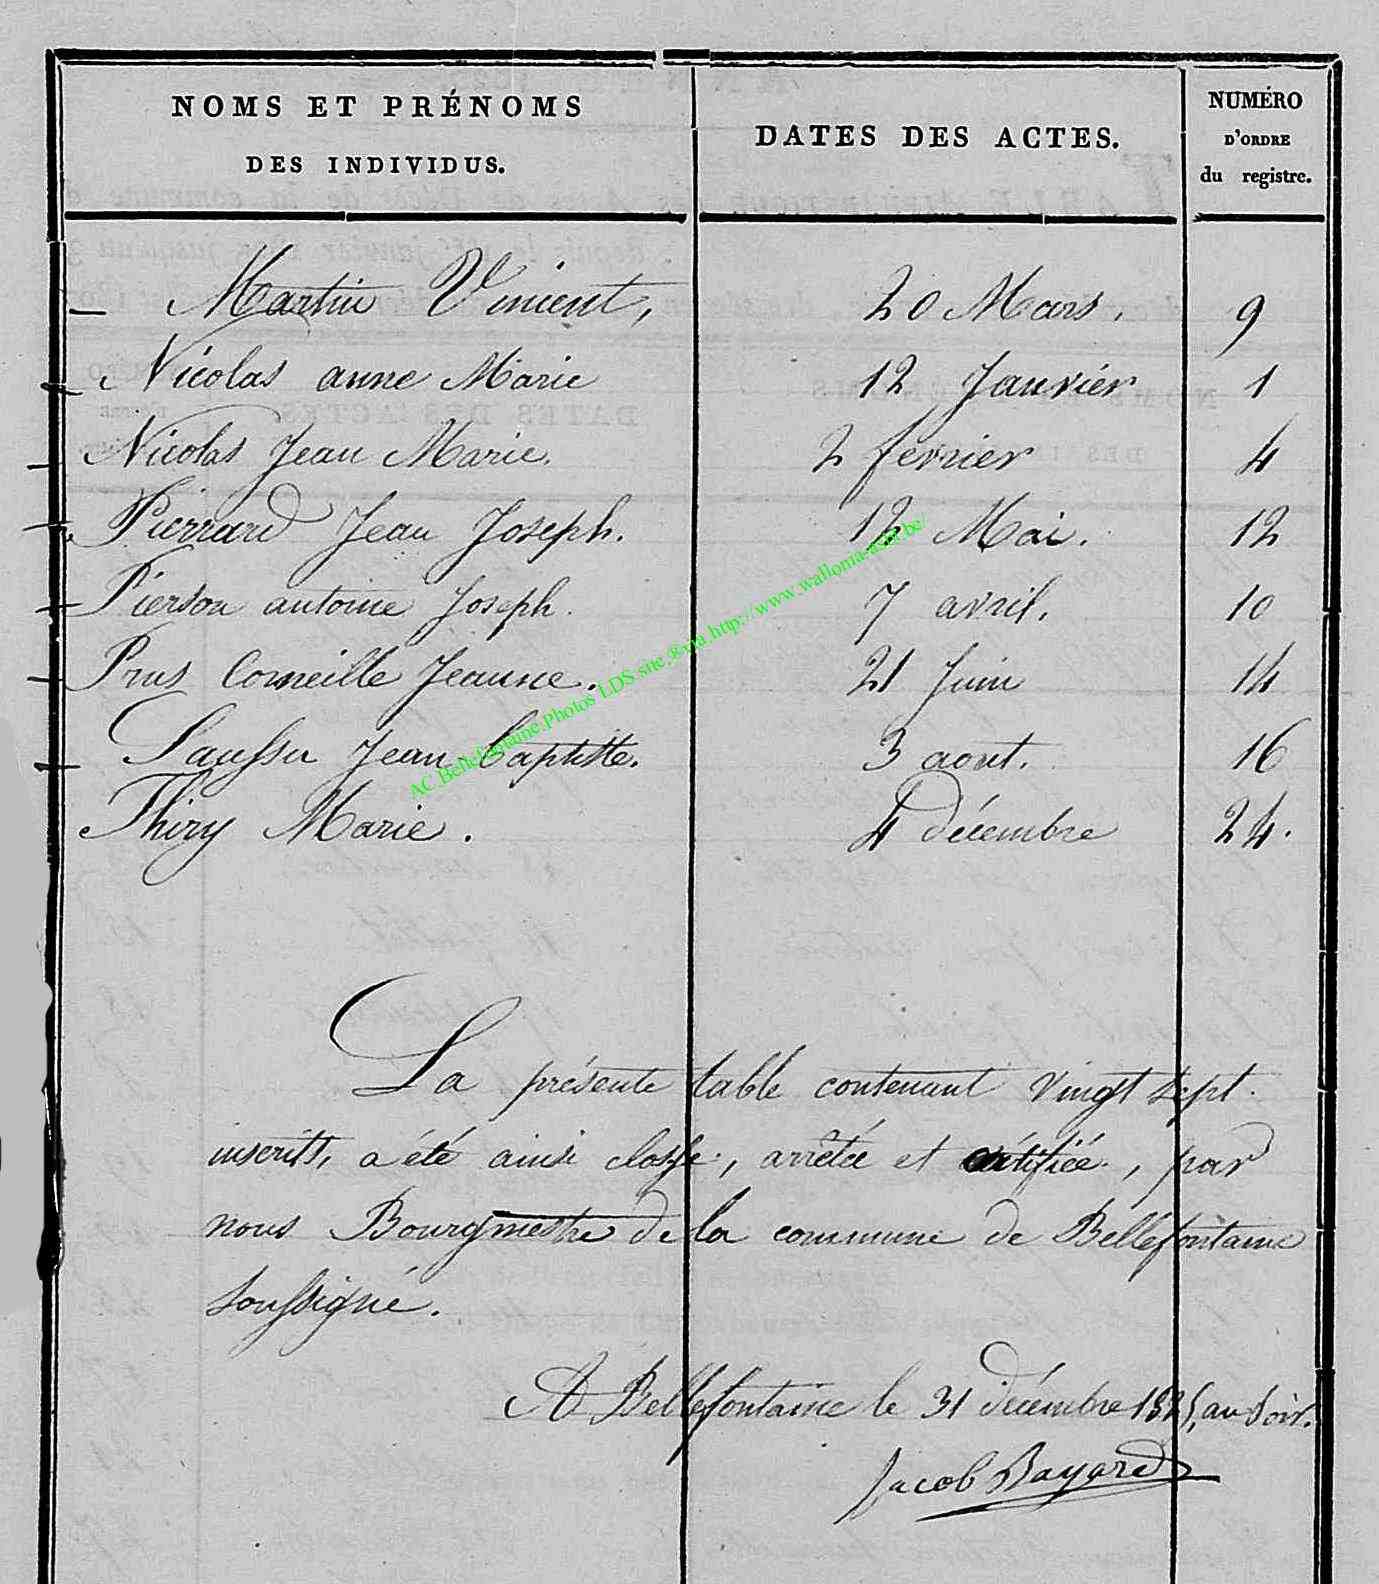 NOMS ET PRÉNOMS
DES INDIVIDUS.
DATES DES ACTES.
NUMÉRO
D'ORDRE
du registre.
Martin Vinient, 20 Mars. 9
Nicolas anne Marie 12 Janvier 1
Nicolas Jean Marie. 2 fevrier 4
Pierrard Jean Joseph. 12 Mai. 12
Pierson antoine Joseph. 7 avril. 10
Prus Corneille Jeanne. 21 Juin 14
Jean Baptiste. 3 aout. 16
Thiry Marie. 4 décembre 24.
La présente table contenant vingt sept
inscrits, a été ainsi close, arrêtée et certifiée, par
nous Bourgmestre de la commune de Bellefontaine
soussigné.
A Bellefontaine le 31 décembre 1825, au soir.
Jacob Bayard
AC Bellefontaine Photos LDS site via http://www.wallonia-asbl.be/